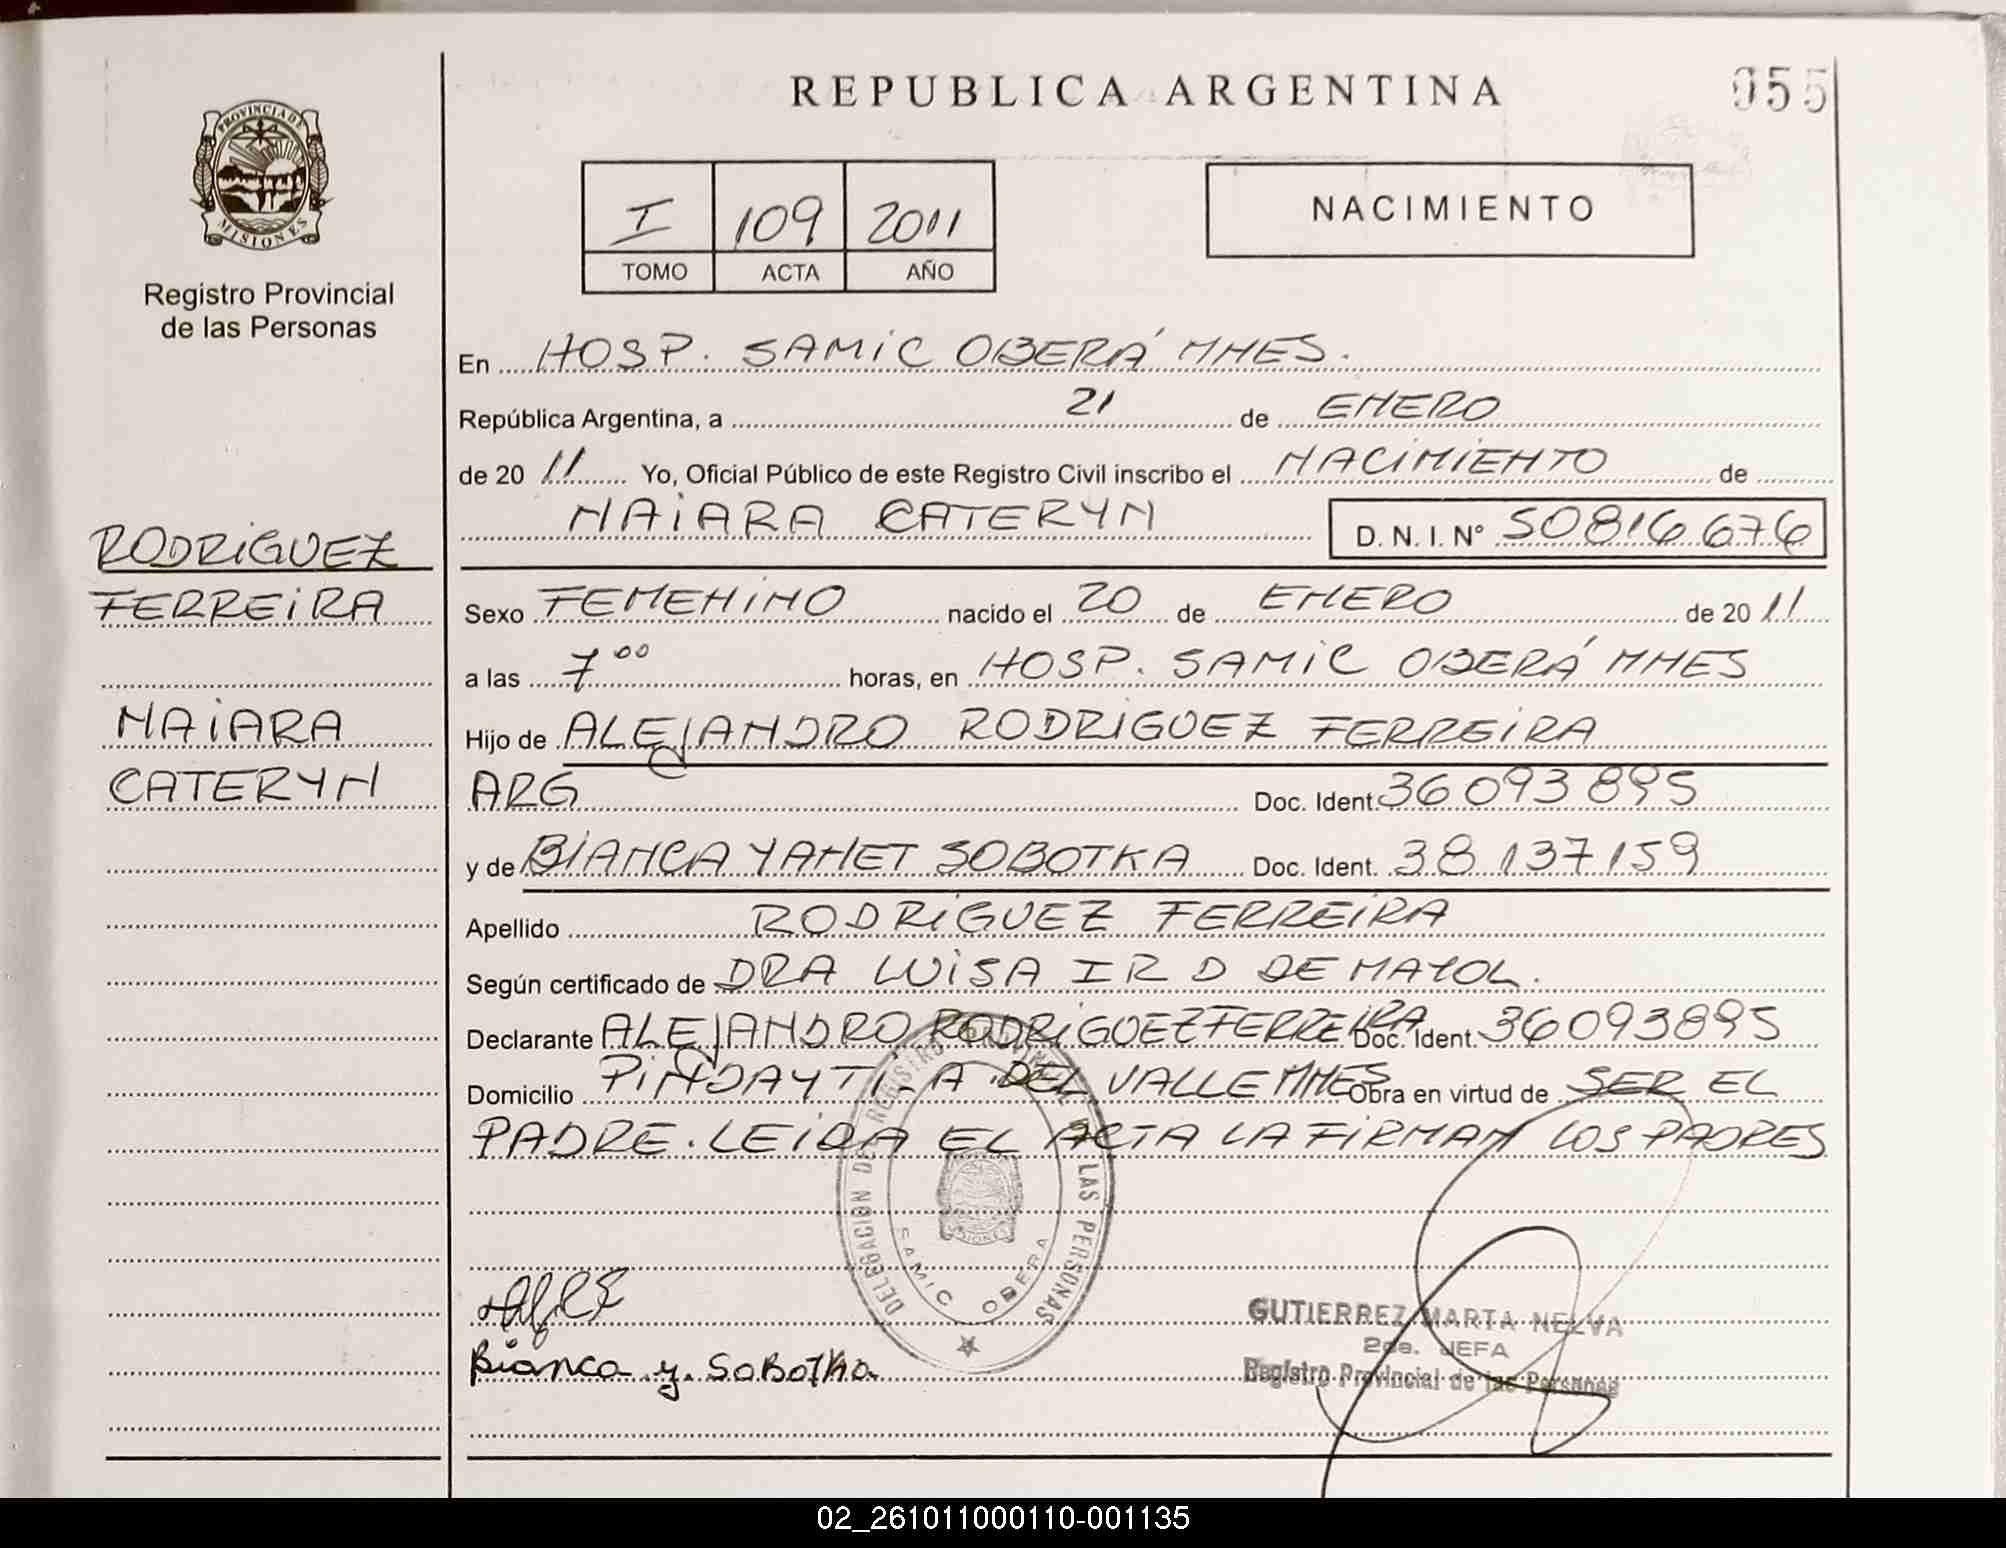 REPUBLICA ARGENTINA
055
PROVINCIA DE
MISIONES
Registro Provincial
de las Personas
I 109 2011
TOMO ACTA AÑO
NACIMIENTO
En HOSP. SAMIC OBERÁ MNES.
República Argentina, a 21 de ENERO
de 20 11 Yo, Oficial Público de este Registro Civil inscribo el NACIMIENTO de
NAIARA CATERYN D. N. I. Nº 50816676
RODRIGUEZ
FERREIRA
NAIARA
CATERYN
Sexo FEMENINO nacido el 20 de ENERO de 20 11
a las 7⁰⁰ horas, en HOSP. SAMIC OBERÁ MNES
Hijo de ALEJANDRO RODRIGUEZ FERREIRA
ARG Doc. Ident. 36093895
y de BIANCA YANET SOBOTKA Doc. Ident. 38137159
Apellido RODRIGUEZ FERREIRA
Según certificado de DRA LUISA IR D DE MAYOL.
Declarante ALEJANDRO RODRIGUEZ FERREIRA Doc. Ident. 36093895
Domicilio PINDAYTI-A DEL VALLE MNES Obra en virtud de SER EL
PADRE. LEIDA EL ACTA LA FIRMAN LOS PADRES
DELEGACION DEL REGISTRO PROVINCIAL DE LAS PERSONAS
SAMIC OBERA
MISIONES
Bianca y. SOBOTKA
GUTIERREZ MARTA NELVA
2da. JEFA
Registro Provincial de las Personas
02_261011000110-001135